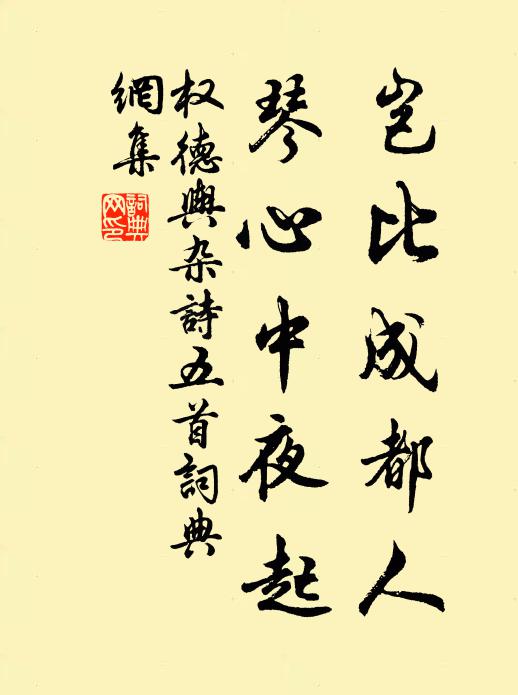 岂比成都人
琴心中夜起
权德舆杂詩五首詞典
網集
詞典
网印